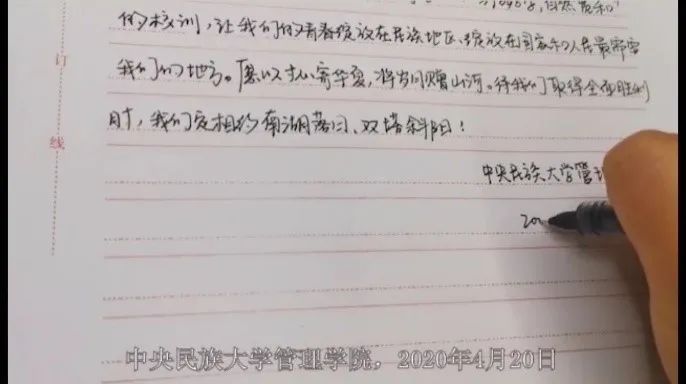 的校训,让我们的青春绽放在民族地区、绽放在国家和人民最需要
我们的地方。愿以寸心寄华夏,将岁月赠山河。待我们取得全面胜利
时,我们定相约南湖落日、双塔斜阳!
中央民族大学管理
20
订
线
中央民族大学管理学院,2020年4月20日